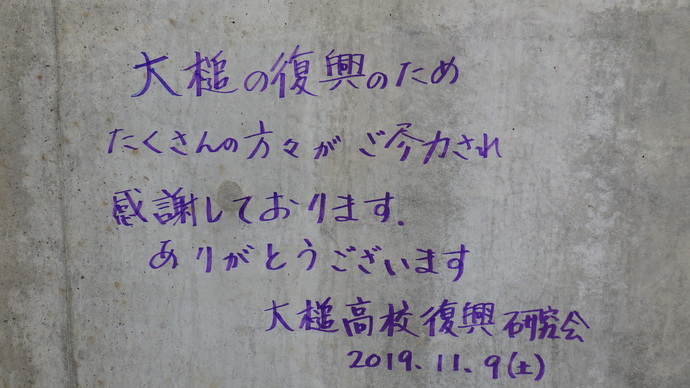 大槌の復興のため
たくさんの方々がご尽力され
感謝しております.
ありがとうございます
大槌高校復興研究会
2019.11.9(土)